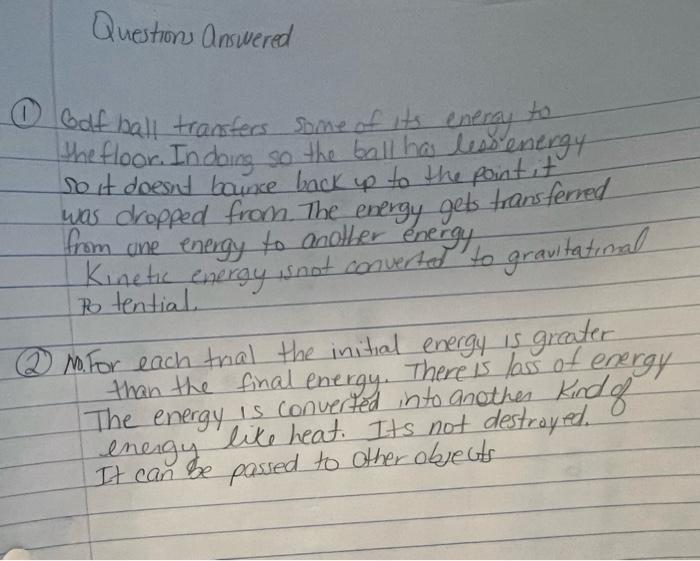 Questions Answered
① Golf ball transfers some of its energy to
the floor. In doing so the ball has less energy
so it doesnt bounce back up to the point it
was dropped from. The energy gets transferred
from one energy to another energy
Kinetic energy is not converted to gravitational
Po tential.
② No. For each trial the initial energy is greater
than the final energy. There is loss of energy
The energy is converted into another Kind of
energy like heat. Its not destroyed.
It can be passed to other objects